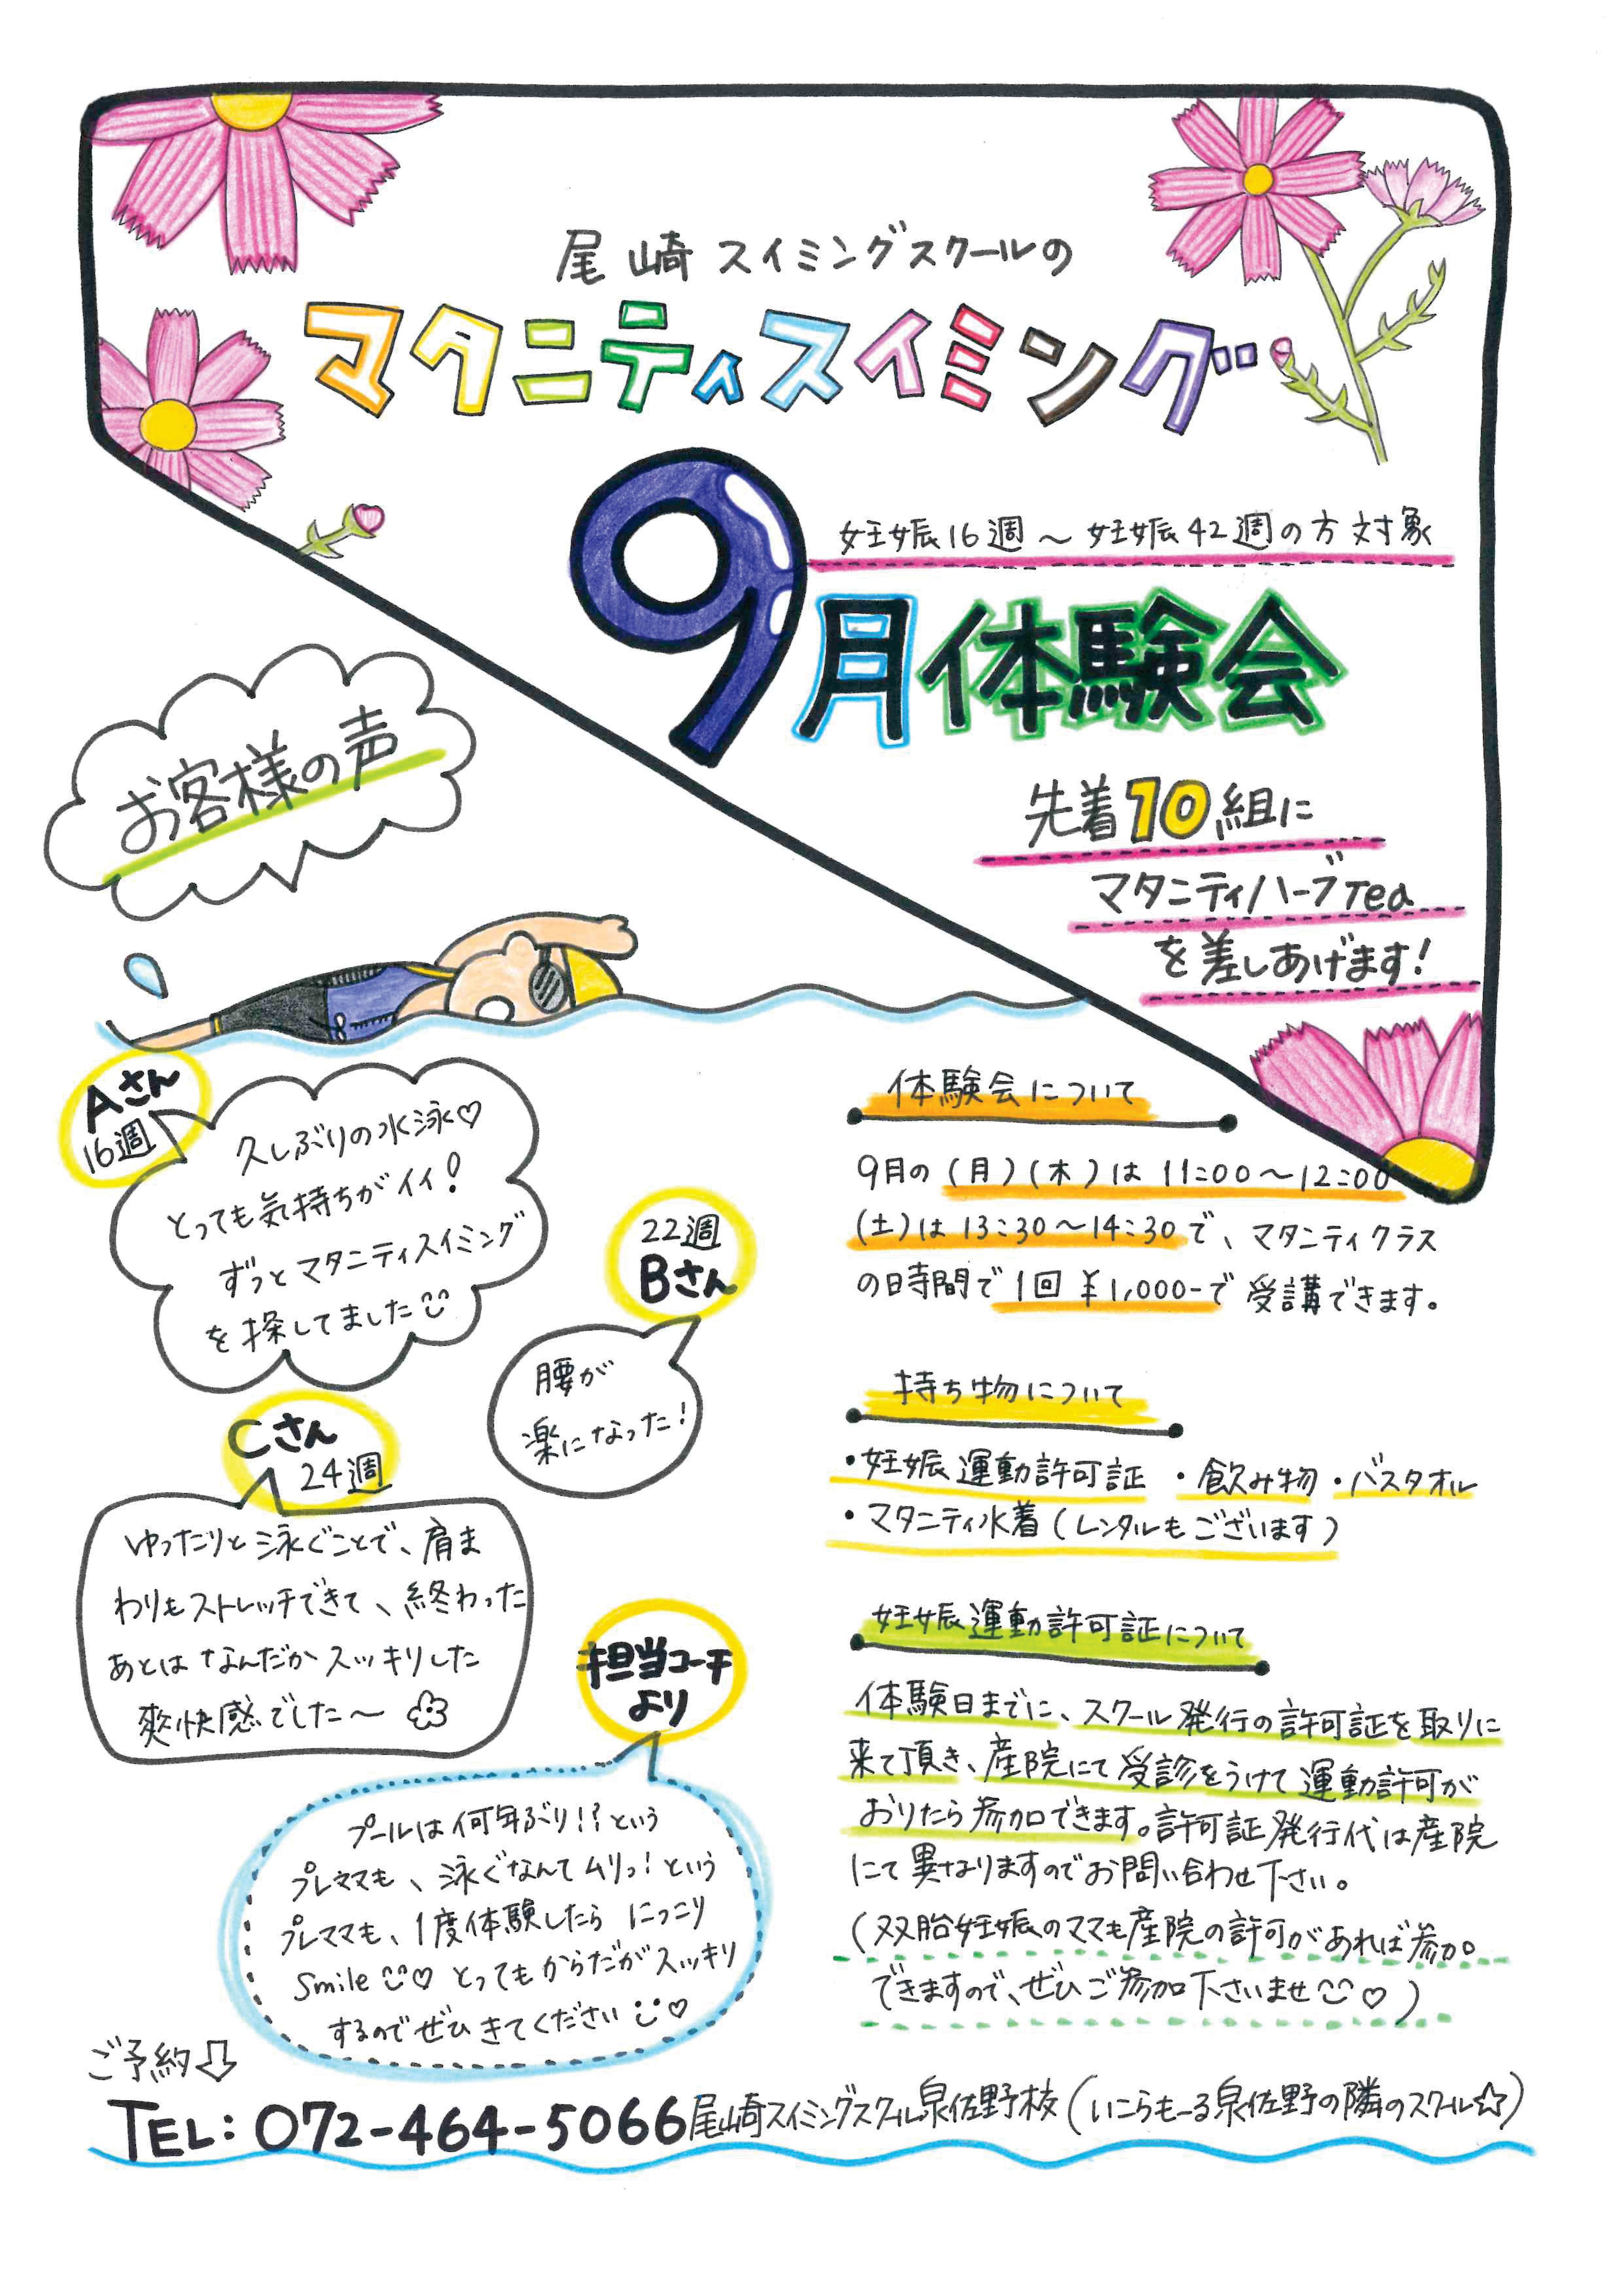 尾崎スイミングスクールの
マタニティスイミング
妊娠16週～妊娠42週の方対象
9月体験会
先着10組に
マタニティハーブTea
を差しあげます!
お客様の声
Aさん
16週
久しぶりの水泳♡
とっても気持ちがイイ!
ずっとマタニティスイミング
を探してました
22週
Bさん
腰が
楽になった!
Cさん
24週
ゆったりと泳ぐことで、肩ま
わりもストレッチできて、終わった
あとはなんだかスッキリした
爽快感でした～
担当コーチ
より
プールは何年ぶり!?という
プレママも、泳ぐなんてムリっ!という
プレママも、1度体験したらにっこり
smile♡とってもからだがスッキリ
するのでぜひきてください♡
体験会について
9月の(月)(木)は11:00～12:00
(土)は13:30～14:30で、マタニティクラス
の日時間で1回¥1,000-で受講できます。
持ち物について
・妊娠運動許可証 ・飲み物 ・バスタオル
・マタニティ水着(レンタルもございます)
妊娠運動許可証について
体験日までに、スクール発行の許可証を取りに
来て頂き、産院にて受診をうけて運動許可が
おりたら参加できます。許可証発行代は産院
にて異なりますのでお問い合わせ下さい。
(双胎妊娠のママも産院の許可があれば参加
できますので、ぜひご参加下さいませ♡)
ご予約⇩
TEL:072-464-5066尾崎スイミングスクール泉佐野校(いこらもーる泉佐野の隣のスクール☆)